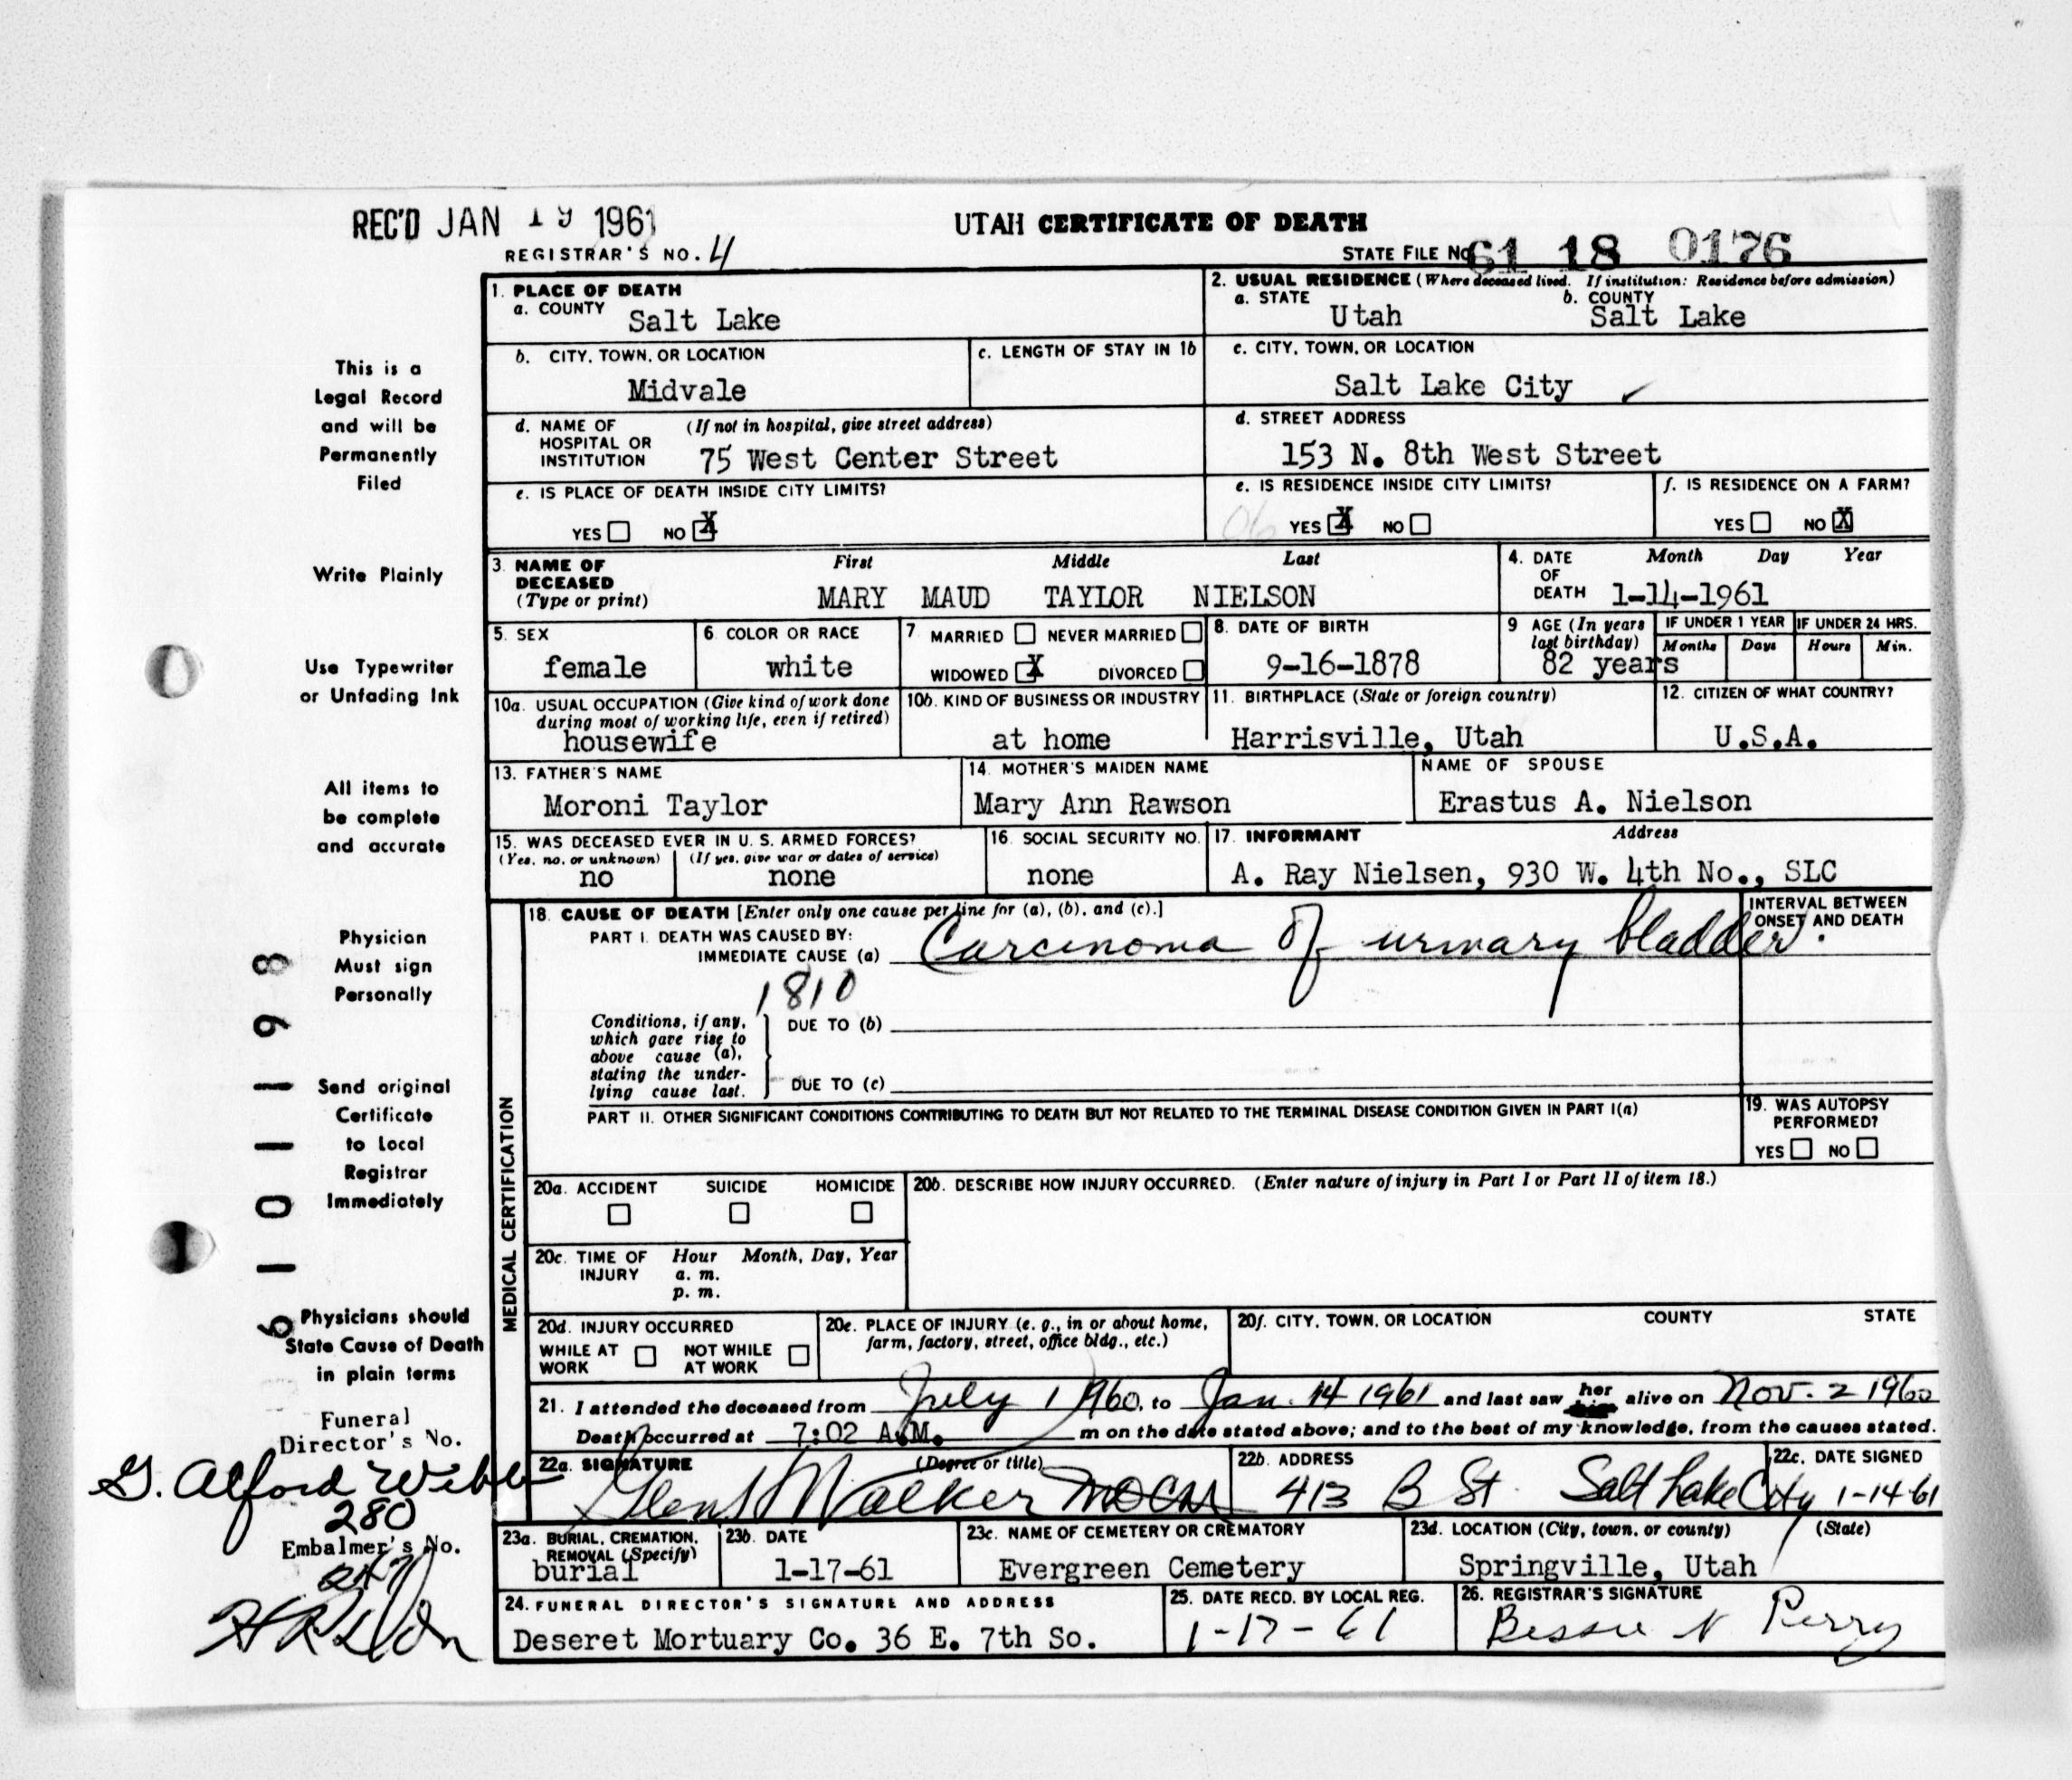 REC'D JAN 19 1961
UTAH CERTIFICATE OF DEATH
REGISTRAR'S NO. 4
STATE FILE NO. 61 18 0176
1. PLACE OF DEATH
a. COUNTY
Salt Lake
2. USUAL RESIDENCE (Where deceased lived. If institution: Residence before admission)
a. STATE
Utah
b. COUNTY
Salt Lake
b. CITY, TOWN, OR LOCATION
Midvale
c. LENGTH OF STAY IN 1b
c. CITY, TOWN, OR LOCATION
Salt Lake City
d. NAME OF (If not in hospital, give street address)
HOSPITAL OR
INSTITUTION
75 West Center Street
d. STREET ADDRESS
153 N. 8th West Street
e. IS PLACE OF DEATH INSIDE CITY LIMITS?
YES NO X
e. IS RESIDENCE INSIDE CITY LIMITS?
06 YES X NO
f. IS RESIDENCE ON A FARM?
YES NO X
3. NAME OF
DECEASED
(Type or print)
First Middle Last
MARY MAUD TAYLOR NIELSON
4. DATE
OF
DEATH
Month Day Year
1-14-1961
5. SEX
female
6. COLOR OR RACE
white
7. MARRIED NEVER MARRIED
WIDOWED X DIVORCED
8. DATE OF BIRTH
9-16-1878
9 AGE (In years
last birthday)
82 years
IF UNDER 1 YEAR
Months Days
IF UNDER 24 HRS.
Hours Min.
10a. USUAL OCCUPATION (Give kind of work done
during most of working life, even if retired)
housewife
10b. KIND OF BUSINESS OR INDUSTRY
at home
11. BIRTHPLACE (State or foreign country)
Harrisville, Utah
12. CITIZEN OF WHAT COUNTRY?
U.S.A.
13. FATHER'S NAME
Moroni Taylor
14. MOTHER'S MAIDEN NAME
Mary Ann Rawson
NAME OF SPOUSE
Erastus A. Nielson
15. WAS DECEASED EVER IN U. S. ARMED FORCES?
(Yes, no, or unknown) (If yes, give war or dates of service)
no none
16. SOCIAL SECURITY NO.
none
17. INFORMANT Address
A. Ray Nielsen, 930 W. 4th No., SLC
MEDICAL CERTIFICATION
18. CAUSE OF DEATH [Enter only one cause per line for (a), (b), and (c).]
PART I. DEATH WAS CAUSED BY:
IMMEDIATE CAUSE (a) Carcinoma of urinary bladder.
INTERVAL BETWEEN
ONSET AND DEATH
1810
Conditions, if any,
which gave rise to
above cause (a),
stating the under-
lying cause last.
DUE TO (b)
DUE TO (c)
PART II. OTHER SIGNIFICANT CONDITIONS CONTRIBUTING TO DEATH BUT NOT RELATED TO THE TERMINAL DISEASE CONDITION GIVEN IN PART I(a)
19. WAS AUTOPSY
PERFORMED?
YES NO
20a. ACCIDENT SUICIDE HOMICIDE
20b. DESCRIBE HOW INJURY OCCURRED. (Enter nature of injury in Part I or Part II of item 18.)
20c. TIME OF Hour Month, Day, Year
INJURY a. m.
p. m.
20d. INJURY OCCURRED
WHILE AT NOT WHILE
WORK AT WORK
20e. PLACE OF INJURY (e. g., in or about home,
farm, factory, street, office bldg., etc.)
20f. CITY, TOWN, OR LOCATION COUNTY STATE
21. I attended the deceased from July 1 1960, to Jan. 14 1961 and last saw her alive on Nov. 2 1960
Death occurred at 7:02 A.M. m on the date stated above; and to the best of my knowledge, from the causes stated.
22a. SIGNATURE (Degree or title)
Walker
22b. ADDRESS
413 B St. Salt Lake City
22c. DATE SIGNED
1-14-61
23a. BURIAL, CREMATION,
REMOVAL (Specify)
burial
23b. DATE
1-17-61
23c. NAME OF CEMETERY OR CREMATORY
Evergreen Cemetery
23d. LOCATION (City, town, or county) (State)
Springville, Utah
24. FUNERAL DIRECTOR'S SIGNATURE AND ADDRESS
Deseret Mortuary Co. 36 E. 7th So.
25. DATE RECD. BY LOCAL REG.
1-17-61
26. REGISTRAR'S SIGNATURE
Bessie N Perry
This is a
Legal Record
and will be
Permanently
Filed
Write Plainly
Use Typewriter
or Unfading Ink
All items to
be complete
and accurate
Physician
Must sign
Personally
Send original
Certificate
to Local
Registrar
Immediately
Physicians should
State Cause of Death
in plain terms
Funeral
Director's No.
G. Alford Webb
280
Embalmer's No.
61011198